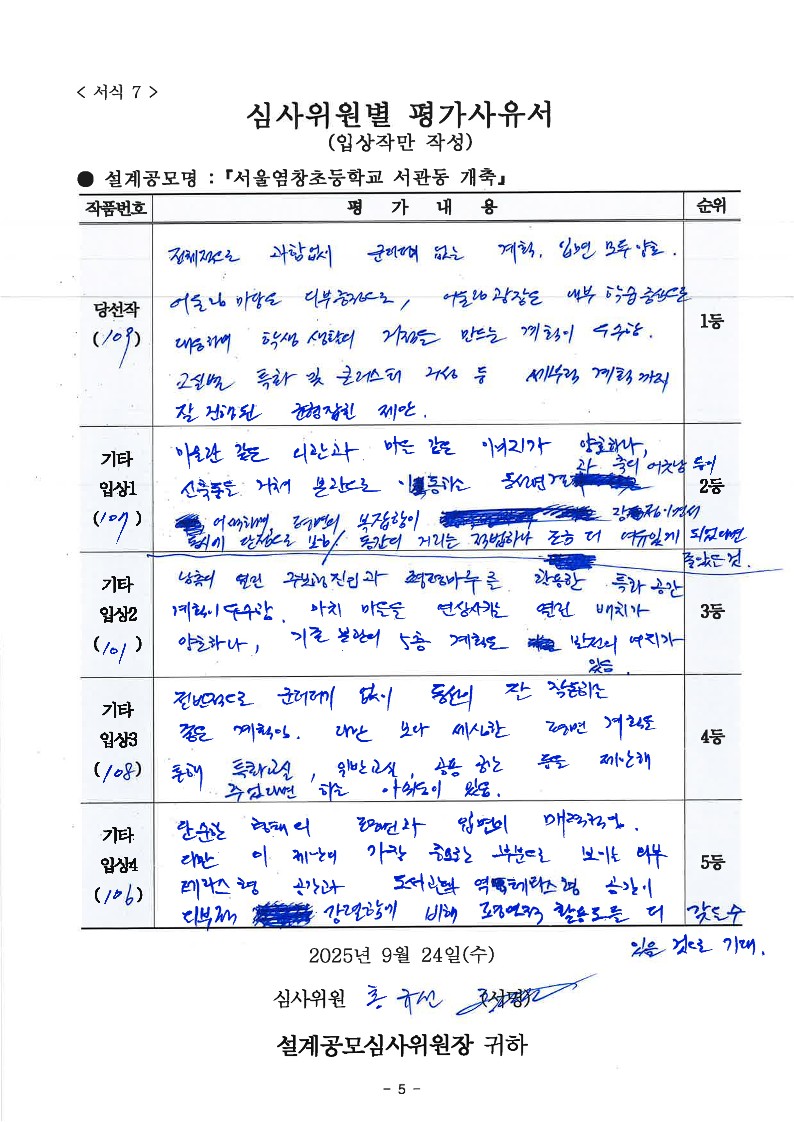 < 서식 7 >
심사위원별 평가사유서
(입상작만 작성)
● 설계공모명 : 『서울염창초등학교 서관동 개축』
작품번호 평 가 내 용 순위
당선작
(109)
전체적으로 과함없이 군더더기 없는 계획. 입면 모두 양호.
어울림 마당은 외부공간으로, 어울림 광장은 내부 학습공간으로
대응하며 학생 생활의 거점을 만드는 계획이 우수함.
교실별 특화 및 클러스터 구성 등 세부적 계획까지
잘 진행된 균형잡힌 제안.
1등
기타
입상1
(107)
아울란 같은 외관과 마을 같은 이미지가 양호하나,
신축동을 거쳐 본관으로 이동하는 동선연결과 축의 어긋남 등이
어색하며, 평면의 복잡함이 장점이면서
동시에 단점으로 보임/ 동간의 거리는 적법하나 조금 더 여유있게 되었다면
좋았을 것.
2등
기타
입상2
(101)
남측의 열린 주보행진입과 평상마루를 활용한 특화 공간
계획이 우수함. 마치 마을을 연상시키는 열린 배치가
양호하나, 기존 본관의 5층 계획은 발전의 여지가
있음.
3등
기타
입상3
(108)
전반적으로 군더더기 없이 동선이 잘 작동하는
좋은 계획임. 다만 보다 세심한 평면 계획을
통해 특화교실, 일반교실, 공용 공간 등을 제안해
주었다면 하는 아쉬움이 있음.
4등
기타
입상4
(106)
단순한 형태의 평면과 입면이 매력적임.
다만 이 제안의 가장 중요한 부분으로 보이는 외부
테라스형 공간과 도서관의 역테라스형 공간이
외부의 강렬함에 비해 평면적 활용도를 더 갖을 수
있을 것으로 기대.
5등
2025년 9월 24일(수)
심사위원 홍규선 (서명)
설계공모심사위원장 귀하
- 5 -